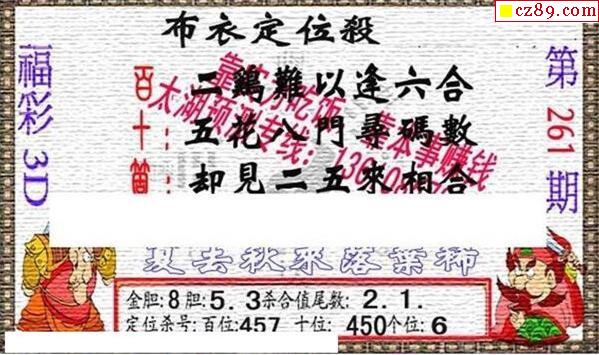 cz89.com
布衣定位殺
福彩3D
第261期
百：二鷄難以逢六合
十：五花八門尋碼數
個：却見二五來相合
靠实力吃饭 靠本事赚钱
太湖预测专线：136
夏去秋來落葉稀
金胆:8胆:5.3杀合值尾数:2.1.
定位杀号:百位:457 十位:450个位:6